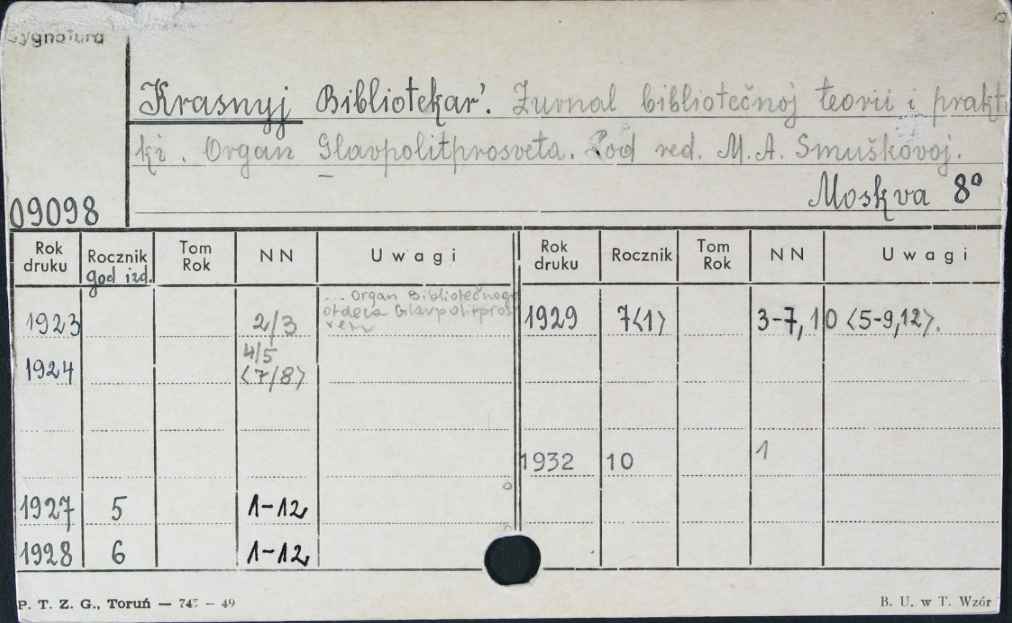 Sygnatura
Krasnyj Bibliotekar'. Žurnal bibliotečnoj teorii i prakti
ki. Organ Glavpolitprosveta. Pod red. M.A. Smuškovoj.
Moskva 8°
09098
Rok druku Rocznik god izd. Tom Rok NN Uwagi Rok druku Rocznik Tom Rok NN Uwagi
... Organ Bibliotečnogo
otdela Glavpolitpros
veta
1923 2/3 1929 7<1> 3-7, 10 <5-9,12>.
4/5
1924 <7/8>
1932 10 1
1927 5 1-12
1928 6 1-12
P. T. Z. G., Toruń — 49
B. U. w T. Wzór